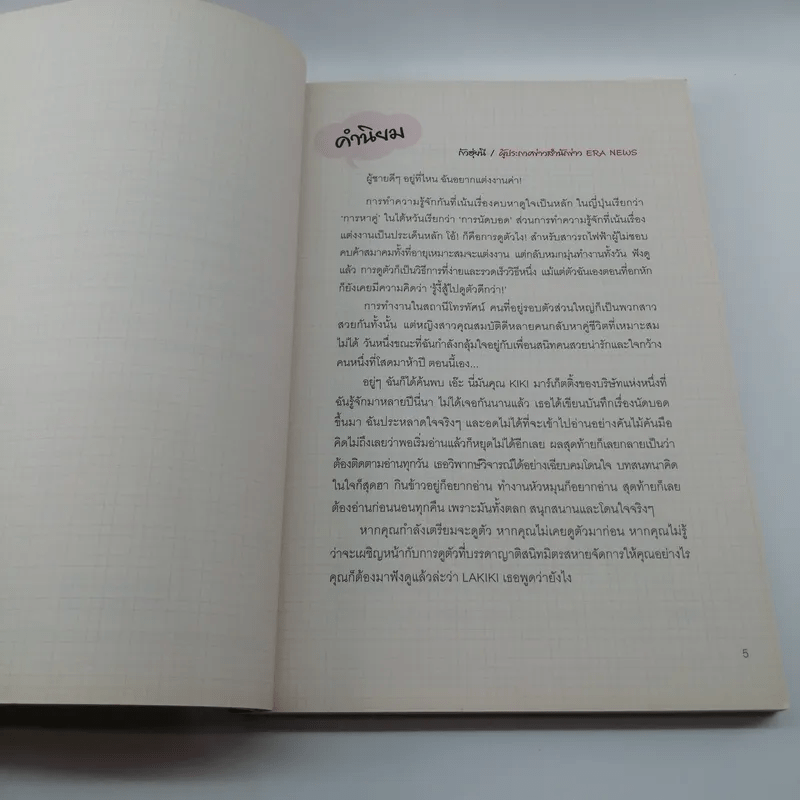 คำนิยม
กัวฮุ่ยนี / ผู้ประกาศข่าวสำนักข่าว ERA NEWS
ผู้ชายดีๆ อยู่ที่ไหน ฉันอยากแต่งงานค่า!
การทำความรู้จักกันที่เน้นเรื่องคบหาดูใจเป็นหลัก ในญี่ปุ่นเรียกว่า
'การหาคู่' ในไต้หวันเรียกว่า 'การนัดบอด' ส่วนการทำความรู้จักที่เน้นเรื่อง
แต่งงานเป็นประเด็นหลัก โอ้! ก็คือการดูตัวไง! สำหรับสาวรถไฟฟ้าผู้ไม่ชอบ
คบค้าสมาคมทั้งที่อายุเหมาะสมจะแต่งงาน แต่กลับหมกมุ่นทำงานทั้งวัน ฟังดู
แล้ว การดูตัวก็เป็นวิธีการที่ง่ายและรวดเร็ววิธีหนึ่ง แม้แต่ตัวฉันเองตอนที่อกหัก
ก็ยังเคยมีความคิดว่า 'รู้งี้สู้ไปดูตัวดีกว่า!'
การทำงานในสถานีโทรทัศน์ คนที่อยู่รอบตัวส่วนใหญ่ก็เป็นพวกสาว
สวยกันทั้งนั้น แต่หญิงสาวคุณสมบัติดีหลายคนกลับหาคู่ชีวิตที่เหมาะสม
ไม่ได้ วันหนึ่งขณะที่ฉันกำลังกลุ้มใจอยู่กับเพื่อนสนิทคนสวยน่ารักและใจกว้าง
คนหนึ่งที่โสดมาห้าปี ตอนนี้เอง...
อยู่ๆ ฉันก็ได้ค้นพบ เอ๊ะ นี่มันคุณ KIKI มาร์เก็ตติ้งของบริษัทแห่งหนึ่งที่
ฉันรู้จักมาหลายปีนี่นา ไม่ได้เจอกันนานแล้ว เธอได้เขียนบันทึกเรื่องนัดบอด
ขึ้นมา ฉันประหลาดใจจริงๆ และอดไม่ได้ที่จะเข้าไปอ่านอย่างคันไม้คันมือ
คิดไม่ถึงเลยว่าพอเริ่มอ่านแล้วก็หยุดไม่ได้อีกเลย ผลสุดท้ายก็เลยกลายเป็นว่า
ต้องติดตามอ่านทุกวัน เธอวิพากษ์วิจารณ์ได้อย่างเฉียบคมโดนใจ บทสนทนาคิด
ในใจก็สุดฮา กินข้าวอยู่ก็อยากอ่าน ทำงานหัวหมุนก็อยากอ่าน สุดท้ายก็เลย
ต้องอ่านก่อนนอนทุกคืน เพราะมันทั้งตลก สนุกสนานและโดนใจจริงๆ
หากคุณกำลังเตรียมจะดูตัว หากคุณไม่เคยดูตัวมาก่อน หากคุณไม่รู้
ว่าจะเผชิญหน้ากับการดูตัวที่บรรดาญาติสนิทมิตรสหายจัดการให้คุณอย่างไร
คุณก็ต้องมาฟังดูแล้วล่ะว่า LAKIKI เธอพูดว่ายังไง
5